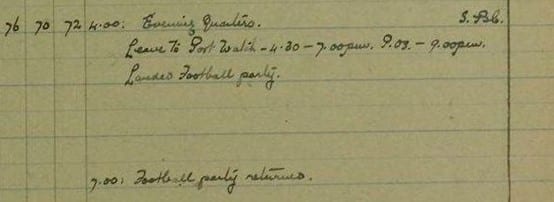 76 70 72 4.00: Evening Quarters. S. Bb.
Leave to Port Watch - 4.30 - 7.00pm. P.Os. - 9.00pm.
Landed Football party.
7.00: Football party returned.